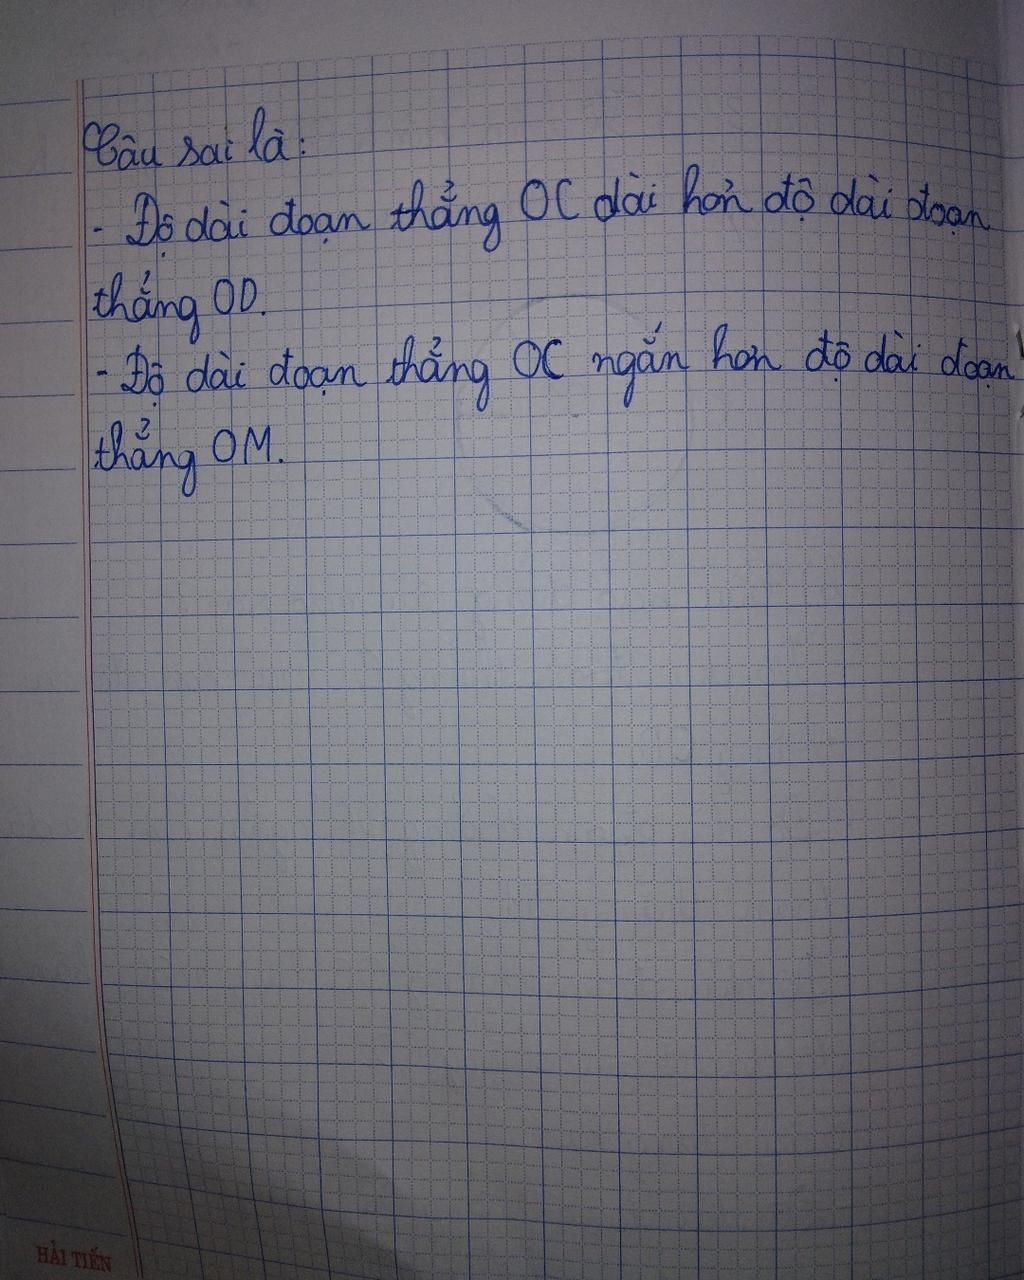 Câu sai là:
- Độ dài đoạn thẳng OC dài hơn độ dài đoạn
thẳng OD.
- Độ dài đoạn thẳng OC ngắn hơn độ dài đoạn
thẳng OM.
HẢI TIẾN